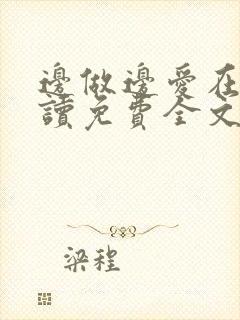 邊做邊愛在
讀免費全文
梁程